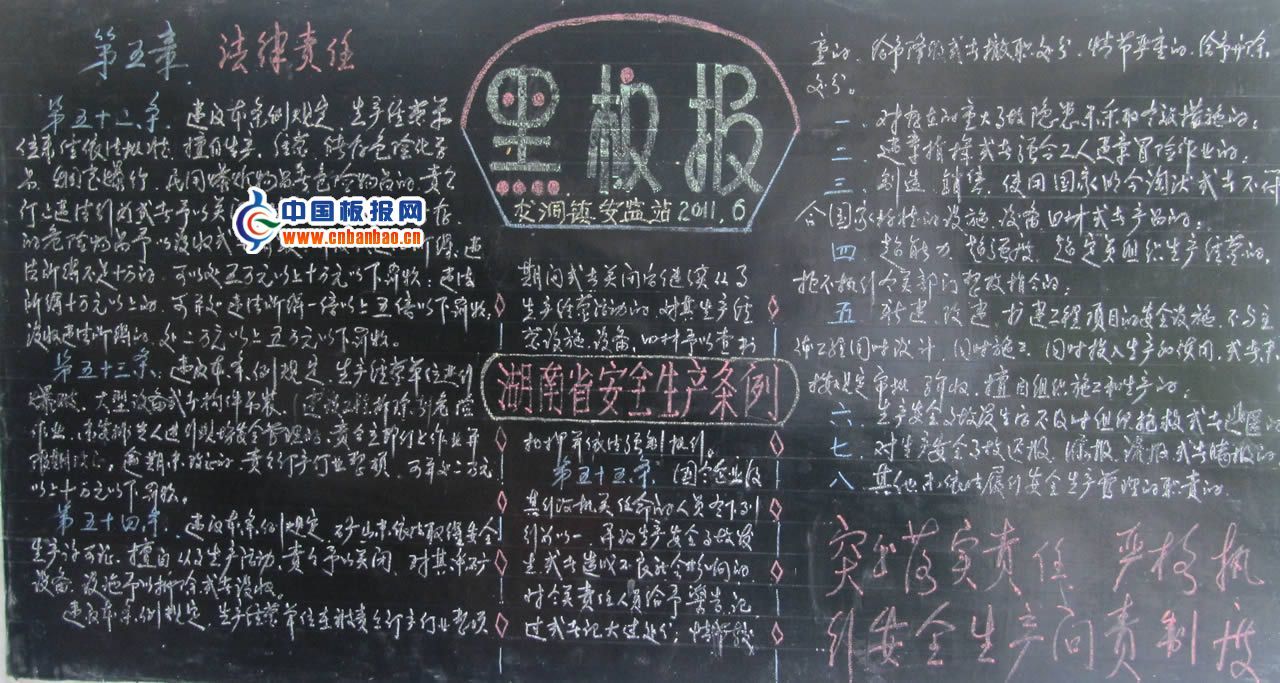 第五章 法律责任
第五十二条、违反本条例规定、生产经营单
位未经依法批准、擅自生产、经营、储存危险化学
品、烟花爆竹、民用爆炸物品等危险物品的、责令
的危险物品予以没收或者
法所得不足十万的、可以处五万元以上十万元以下罚款、违法
所得十万元以上的、可并处违法所得一倍以上五倍以下罚款、
没收违法所得的、处二万元以上五万元以下罚款。
第五十三条、违反本条例规定、生产经营单位进行
爆破、大型设备或者构件吊装、建设工程拆除等危险
作业、未安排专人进行现场安全管理的、责令立即停止作业并
限期改正、逾期未改正的、责令停产停业整顿、可并处二万元
以上十万元以下罚款。
第五十四条、违反本条例规定、矿山未依法取得安全
生产许可证、擅自从事生产活动、责令予以关闭、对其采矿
设备、设施予以拆除或者没收。
违反本条例规定、生产经营单位在被责令停产停业整顿
黑板报
安监站 2011.6
中国板报网
www.cnbanbao.cn
期间或者关闭后继续从事
生产经营活动的、对其生产经
营设施、设备、四材予以查封
湖南省安全生产条例
扣押并依法强制执行。
第五十五条、国家企业及
其行政机关任命的人员有下列
行为以一、导致生产安全事故发
生或者造成不良社会影响的
对有关责任人员给予警告、记
过或者记大过处分；情节较
重的、给予降级或者撤职处分、情节严重的、给予开除
处分。
一、对存在的重大事故隐患未采取有效措施的；
二、违章指挥或者强令工人违章冒险作业的；
三、制造、销售、使用国家明令淘汰或者不符
合国家标准的设施、设备、四材或者产品的；
四、超能力、超强度、超定员组织生产经营的，
拒不执行有关部门整改指令的；
五、新建、改建、扩建工程项目的安全设施、不与主
体工程同时设计、同时施工、同时投入生产和使用、或者未
按规定审批、验收、擅自组织施工和生产的。
六、生产安全事故发生后不及时组织抢救或者逃匿的
七、对生产安全事故迟报、漏报、谎报或者瞒报的
八、其他未依法履行安全生产管理的职责的
突出落实责任 严格执
行安全生产问责制度